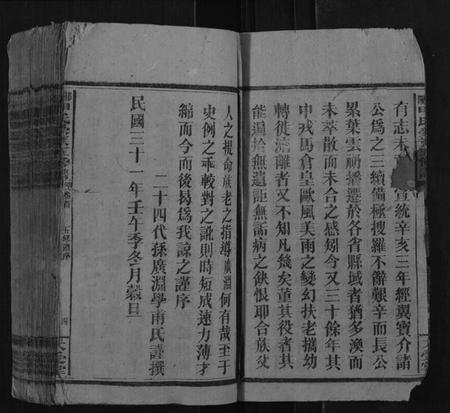 有志未
宣統辛亥三年經翼寶介諸
公為之三續備極搜羅不辭艱辛而長公
累葉雲礽播遷於各省縣域者猶多渙而
未萃散而未合之感矧今又三十餘年其
中戎馬倉皇歐風美雨之變幻扶老攜幼
轉徙流離者又不知凡幾矣董其役者其
能遍拾無遺詎無詬病之餘恨耶合族父
人之提命族老之指導廣淵何有哉至于
史例之乖較對之訛則時短成速力薄才
綿而今而後曷為我諒之謹序
二十四代孫廣淵學甫氏謹撰
民國三十一年壬午季冬月穀旦
四